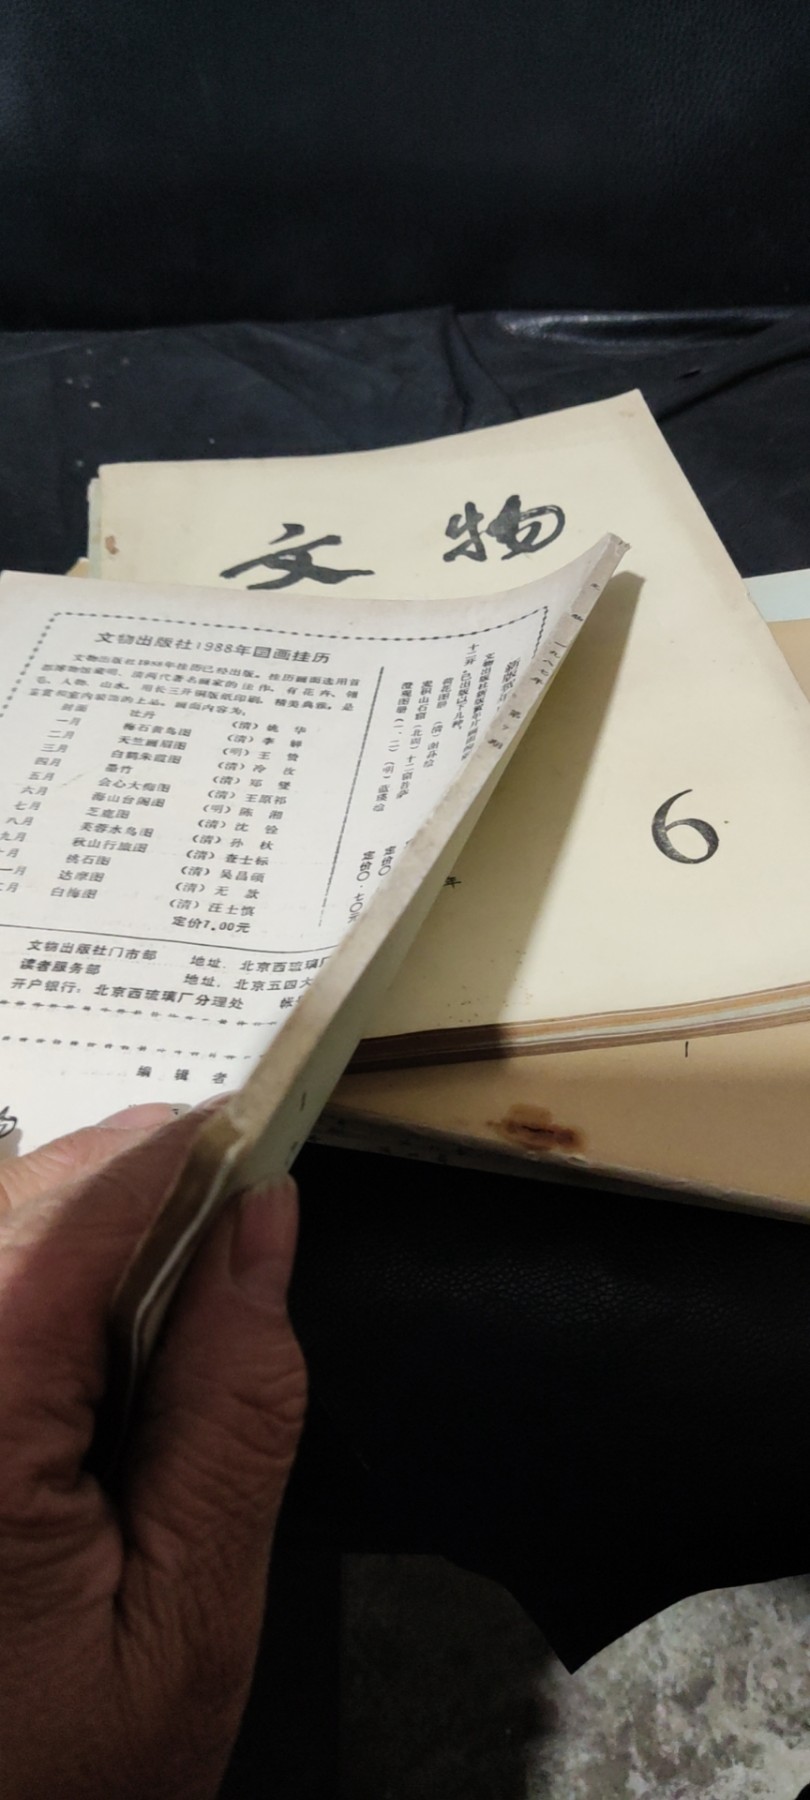 文物
6
年
文物 一九八七年 第
文物出版社1988年国画挂历
文物出版社1988年挂历已经出版。挂历画面选用首
都博物馆藏明、清两代著名画家的佳作，有花卉、翎
毛、人物、山水。用长三开铜版纸印刷，精美典雅，是
鉴赏和室内装饰的上品。画面内容为：
封面 牡丹 （清）姚 华
一月 梅石黄鸟图 （清）李 鱓
二月 天竺画眉图 （明）王
三月 白鹤朱霞图 （清）冷 汝
四月 墨竹 （清）郑 燮
五月 会心大梅图 （清）王原祁
六月 海山台阁图 （明）陈
七月 芝鹿图 （清）沈 铨
八月 芙蓉水鸟图 （清）孙
九月 秋山行旅图 （清）查士标
十月 桃石图 （清）吴昌硕
一月 达摩图 （清）无 款
二月 白梅图 （清）汪士慎
定价7.00元
文物出版社门市部 地址：北京西琉璃厂
读者服务部 地址：北京五四大
开户银行：北京西琉璃厂分理处 帐
编 辑 者
物